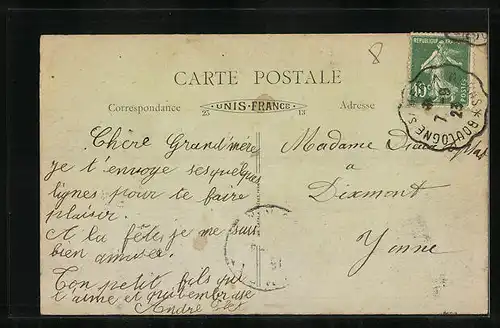 8
REPUBLIQUE FRANÇAISE
POSTES
CARTE POSTALE
Correspondance
UNIS-FRANCE
Adresse
BOULOGNE S
7 -8
23
Chère Grand'mère
je t'envoye ses quelques
lignes pour te faire
plaisir.
A la fête je me suis
bien amuser.
Ton petit fils qui
t'aime et qui embrasse
André
Madame
a
Dixmont
Yonne